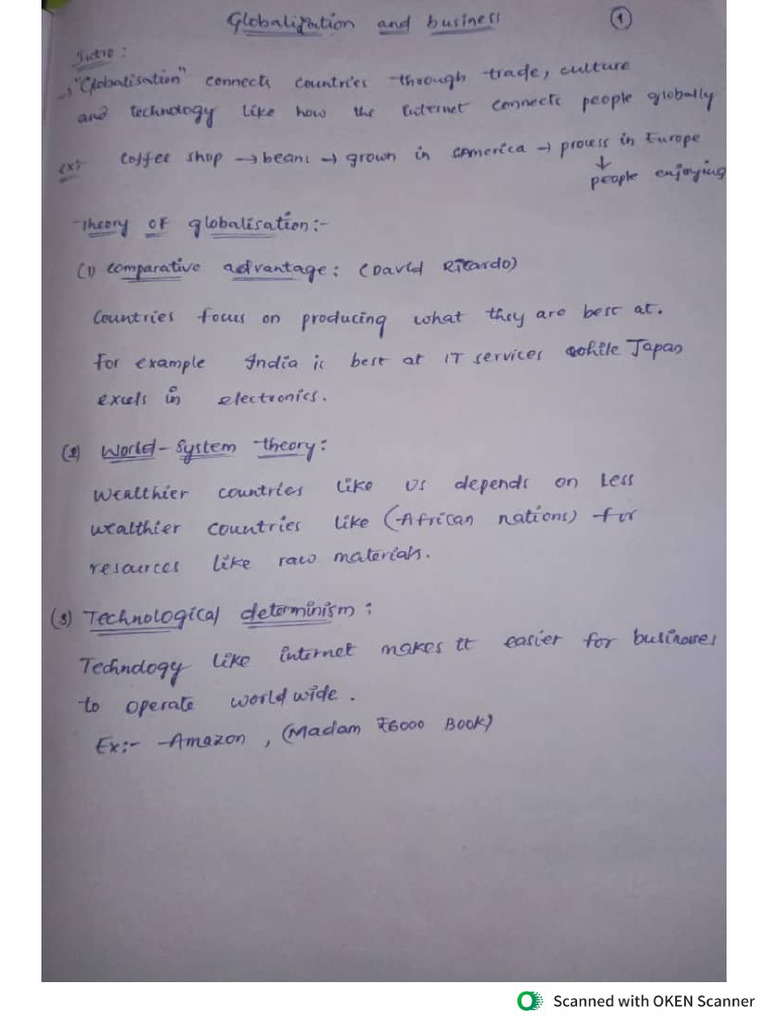 Globalization and business 1
Intro:
→ "Globalisation" connects countries through trade, culture
and technology like how the internet connects people globally
ex:- coffee shop → beans → grown in SAmerica → process in Europe
↓
people enjoying
Theory of globalisation:-
(1) comparative advantage: (David Ricardo)
Countries focus on producing what they are best at.
For example India is best at IT services while Japan
excels in electronics.
(2) World-System theory:
Wealthier countries like US depends on less
wealthier countries like (African nations) for
resources like raw materials.
(3) Technological determinism:
Technology like internet makes it easier for businesses
to operate world wide.
Ex:- Amazon, (Madam ₹6000 Book)
Scanned with OKEN Scanner